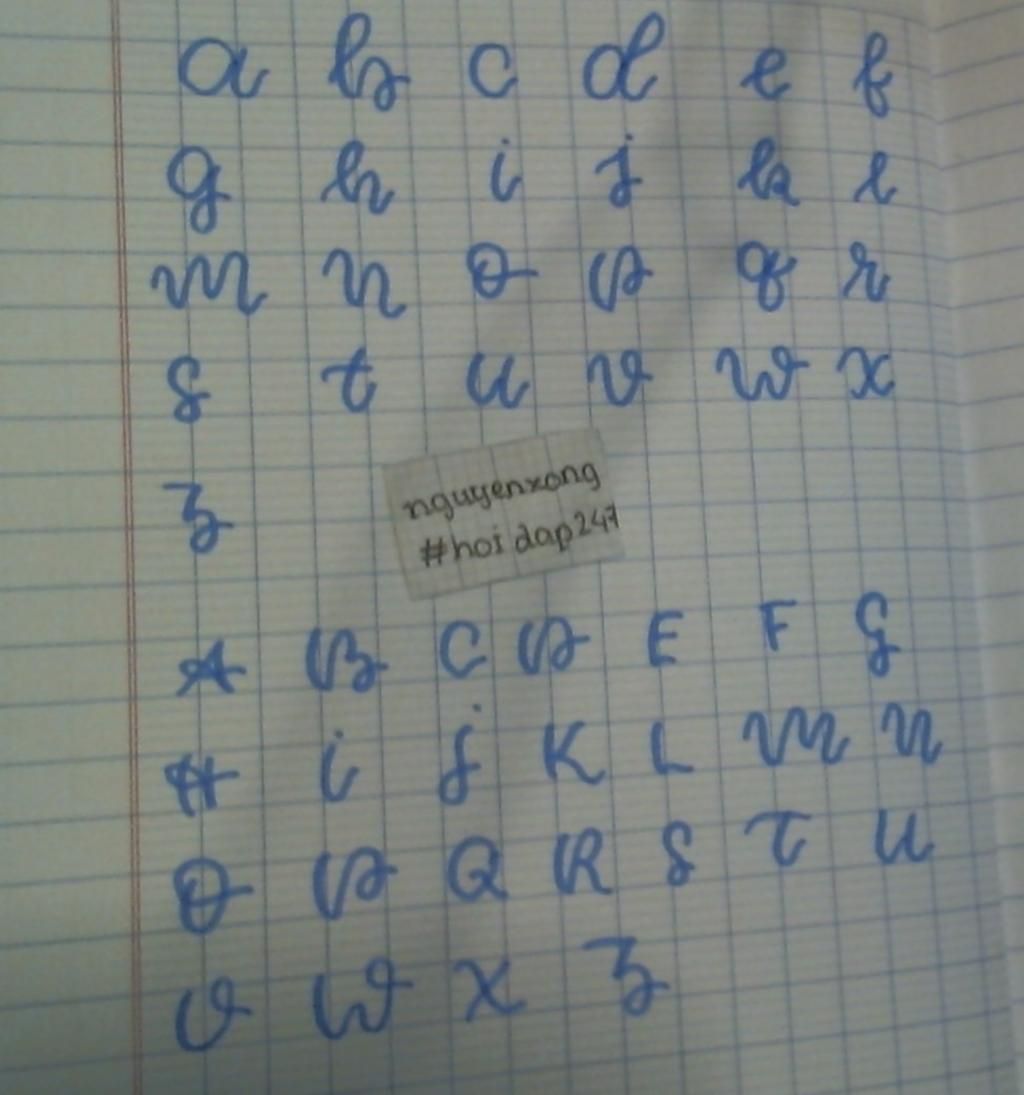 a b c d e f
g h i j k l
m n o p q r
s t u v w x
z
nguyenxong
#hoidap247
A B C D E F G
H i j K L M N
O P Q R S T U
V W X Z